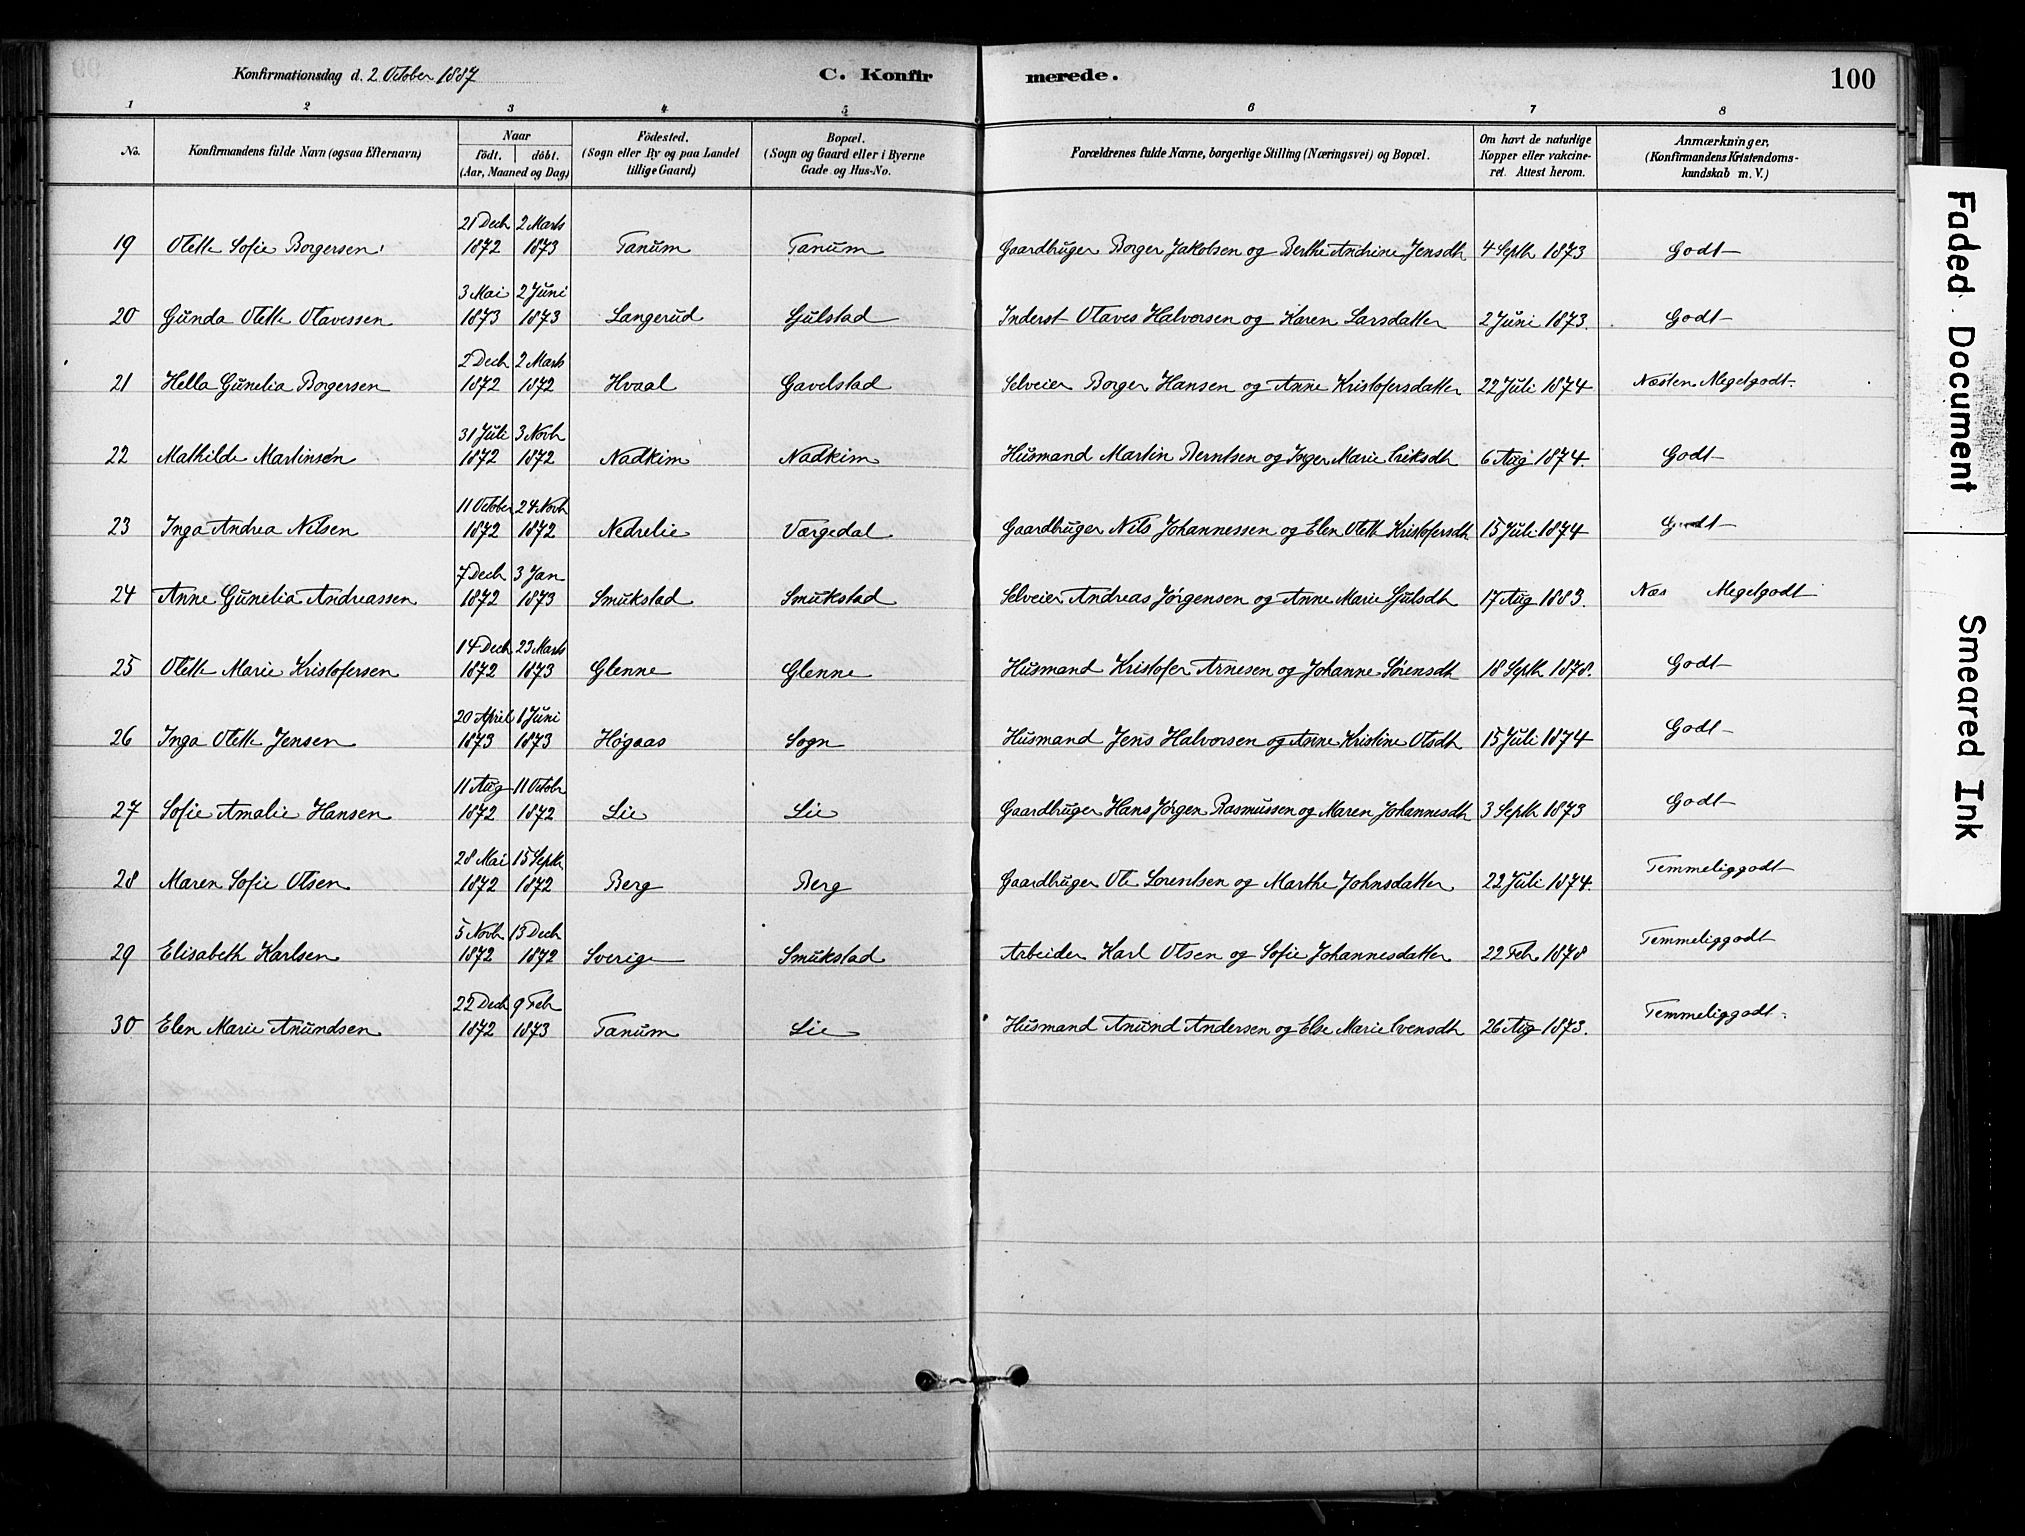 Konfirmationsdag d. 2 October 1887 C. Konfirmerede. 100
1 2 3 4 5 6 7 8
No. Konfirmandens fulde Navn (ogsaa Efternavn) Naar födt. döbt. (Aar, Maaned og Dag) Födested. (Sogn eller By og paa Landet tillige Gaard) Bopæl. (Sogn og Gaard eller i Byerne Gade og Hus-No. Forældrenes fulde Navne, borgerlige Stilling (Næringsvei) og Bopæl. Om havt de naturlige Kopper eller vakcineret. Attest herom. Anmærkninger, (Konfirmandens Kristendomskundskab m. V.)
21 Decb 2 Marts
19 Olette Sofie Borgersen 1872 1873 Tanum Tanum Gaardbruger Borger Jakobsen og Berthe Andrine Jensdt 4 Septb 1873 Godt
3 Mai 2 Juni
20 Gunda Olette Olavessen 1873 1873 Langerud Gjulstad Inderst Olaves Halvorsen og Karen Larsdatter 2 Juni 1873. Godt
2 Decb 2 Marts
21 Hella Gunelia Borgersen 1872 1872 Hvaal Gavelstad Selveier Borger Hansen og Anne Kristofersdatter 22 Juli 1874 Næsten Megetgodt.
31 Juli 3 Novb
22 Mathilde Martinsen 1872 1872 Nadkim Nadkim Husmand Martin Berntsen og Inger Marie Eriksdt 6 Aug 1874. Godt
11 October 24 Novb
23 Inga Andrea Nilsen 1872 1872 Nedrelie Værgedal Gaardbruger Nils Johannessen og Elen Olette Kristofersdt 15 Juli 1874 Godt
7 Decb 3 Jan
24 Anne Gunelia Andreassen 1872 1873 Smukstad Smukstad Selveier Andreas Jørgensen og Anne Marie Gjulsdt 17 Aug 1883. Næs Megetgodt
14 Decb 23 Marts
25 Olette Marie Kristofersen 1872 1873 Glenne Glenne Husmand Kristofer Arnesen og Johanne Sørensdt 18 Septb 1878. Godt
20 April 1 Juni
26 Inga Olette Jensen 1873 1873 Høgaas Sogn Husmand Jens Halvorsen og Anne Kristine Olsdt 15 Juli 1874 Godt
11 Aug 11 Octob
27 Sofie Amalie Hansen 1872 1872 Lie Lie Gaardbruger Hans Jørgen Rasmussen og Maren Johannesdt 3 Septb 1873 Godt
28 Mai 15 Septb
28 Maren Sofie Olsen 1872 1872 Berg Berg Gaardbruger Ole Lorentsen og Marthe Johnsdatter 22 Juli 1874. Temmeliggodt
5 Novb 13 Decb
29 Elisabeth Karlsen 1872 1872 Sverige Smukstad Arbeider Karl Olsen og Sofie Johannesdatter 22 Feb 1878 Temmeliggodt
22 Decb 9 Feb
30 Elen Marie Anundsen 1872 1873 Tanum Lie Husmand Anund Andersen og Else Marie Evensdt 26 Aug 1873. Temmeliggodt.
Faded Document
Smeared Ink